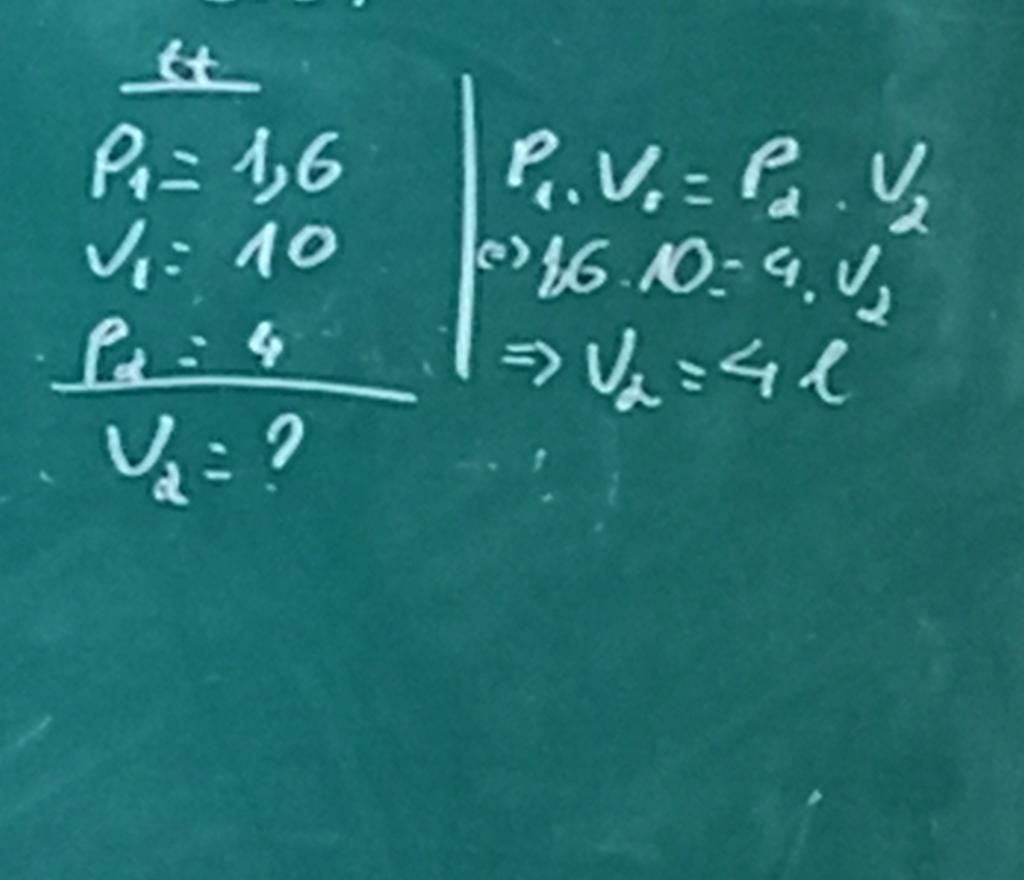 tt
P₁ = 1,6
V₁ = 10
P₂ = 4
V₂ = ?
P₁ . V₁ = P₂ . V₂
<=> 1,6 . 10 = 4 . V₂
=> V₂ = 4 l